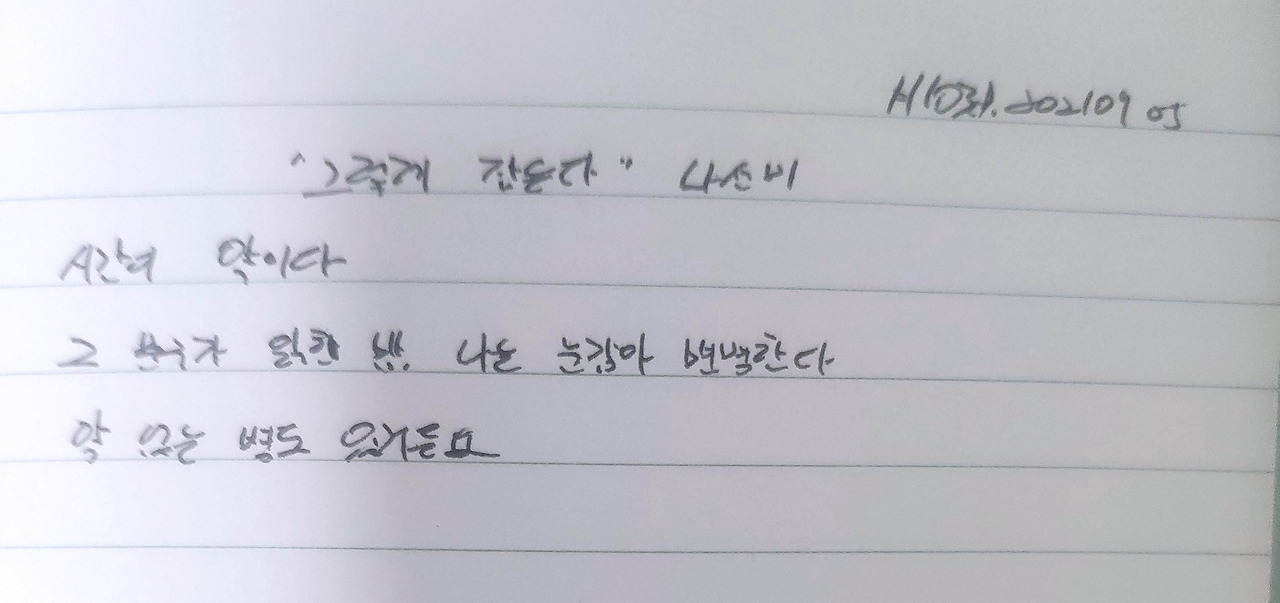 20210905
"그렇게 잡는다" 나선비
시간이 약이다
그 문구가 읽힌 밤. 나는 눈감아 번벅한다
약 없는 병도 있거든요